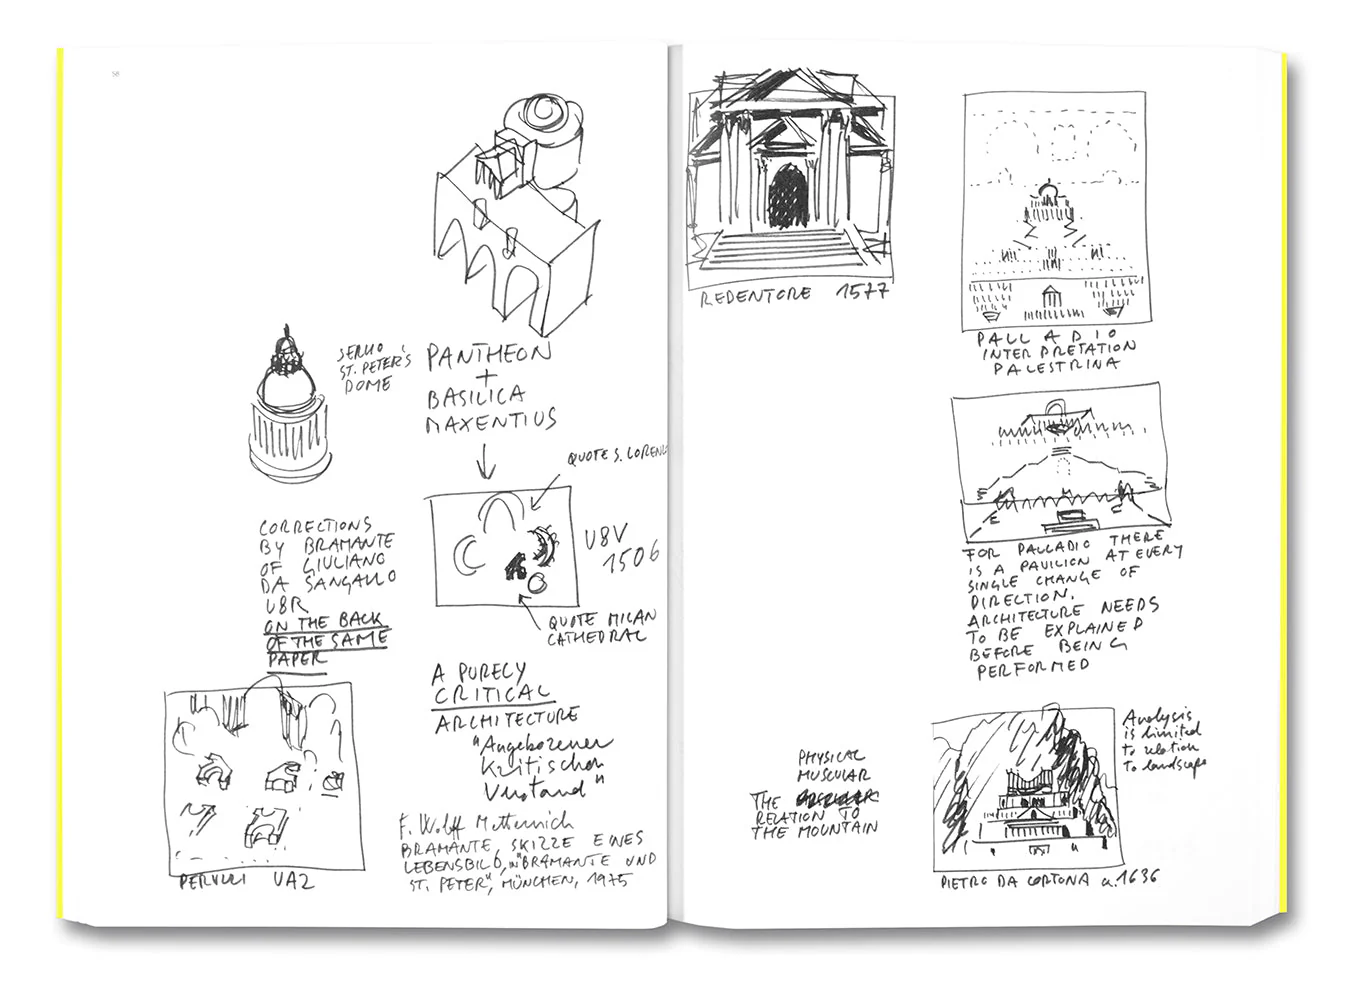 58
SERLIO
ST. PETER'S
DOME
PANTHEON
+
BASILICA
MAXENTIUS
QUOTE S. LORENZ
U8V
1506
QUOTE MILAN
CATHEDRAL
CORRECTIONS
BY BRAMANTE
OF GIULIANO
DA SANGALLO
U8R
ON THE BACK
OF THE SAME
PAPER
A PURELY
CRITICAL
ARCHITECTURE
"Angeborener
Kritischer
Verstand"
F. Wolff Metternich
BRAMANTE, SKIZZE EINES
LEBENSBILD, "BRAMANTE UND
ST. PETER", MÜNCHEN, 1975
PERUZZI UA2
REDENTORE 1577
PALLADIO
INTERPRETATION
PALESTRINA
FOR PALLADIO THERE
IS A PAVILION AT EVERY
SINGLE CHANGE OF
DIRECTION.
ARCHITECTURE NEEDS
TO BE EXPLAINED
BEFORE BEING
PERFORMED
PHYSICAL
MUSCULAR
THE
RELATION TO
THE MOUNTAIN
Analysis
is limited
to relation
to landscape
PIETRO DA CORTONA a. 1636